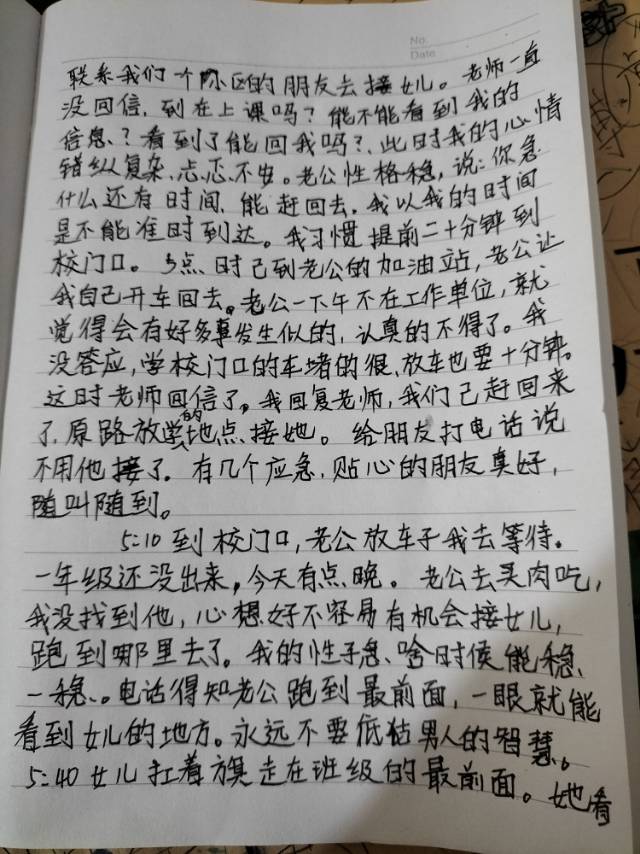 No.
Date
联系我们一个小区的朋友去接女儿。老师一直
没回信,到在上课吗?能不能看到我的
信息?看到了能回我吗?此时我的心情
错纵复杂、忐忑不安。老公性格稳,说:你急
什么还有时间,能赶回去,我以我的时间
是不能准时到达。我习惯提前二十分钟到
校门口。5点时已到老公的加油站,老公让
我自己开车回去。老公一下午不在工作单位,就
觉得会有好多事发生似的,认真的不得了。我
没答应,学校门口的车堵的很,放车也要十分钟。
这时老师回信了,我回复老师,我们已赶回来
了,原路放学的地点接她。给朋友打电话说
不用他接了。有几个应急,贴心的朋友真好,
随叫随到。
5:10到校门口,老公放车子我去等待。
一年级还没出来,今天有点晚。老公去买肉吃,
我没找到他,心想好不容易有机会接女儿,
跑到哪里去了。我的性子急、啥时候能稳
一稳、。电话得知老公跑到最前面,一眼就能
看到女儿的地方。永远不要低估男人的智慧。
5:40女儿扛着旗走在班级的最前面。她看